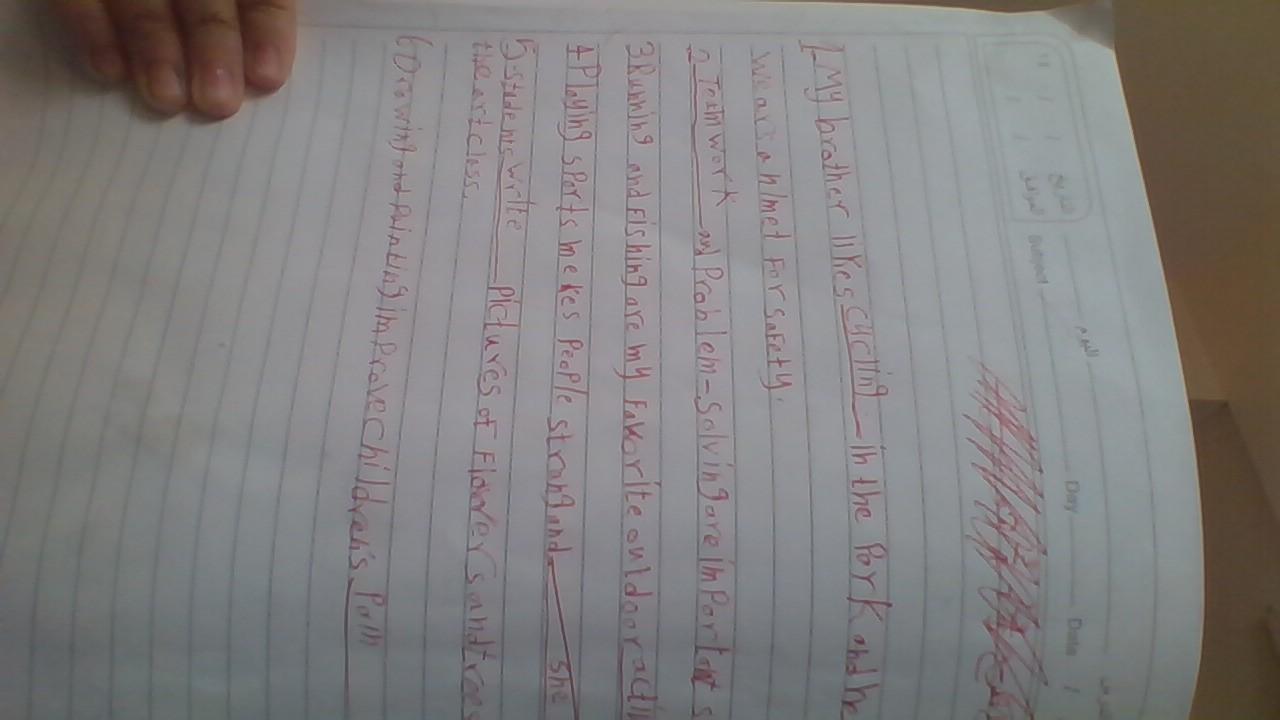 Day
Date
1-My brother likes cycling in the Park and he
wears a hlmet For safety.
2-Teamwork and Problem-solving are imPortant s
3Running and Fishing are my Favorite outdoor acti
4Playing sports makes PeoPle strong and she
5-students write pictures of Flowers and trees
the art class.
6)Drawing and Painting imProve children's Pain